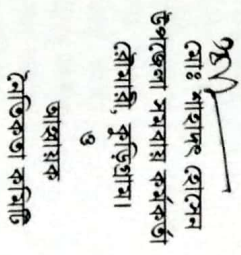 মোঃ শাহাদৎ হোসেন
উপজেলা সমবায় কর্মকর্তা
রৌমারী, কুড়িগ্রাম।
ও
আহবায়ক
নৈতিকতা কমিটি